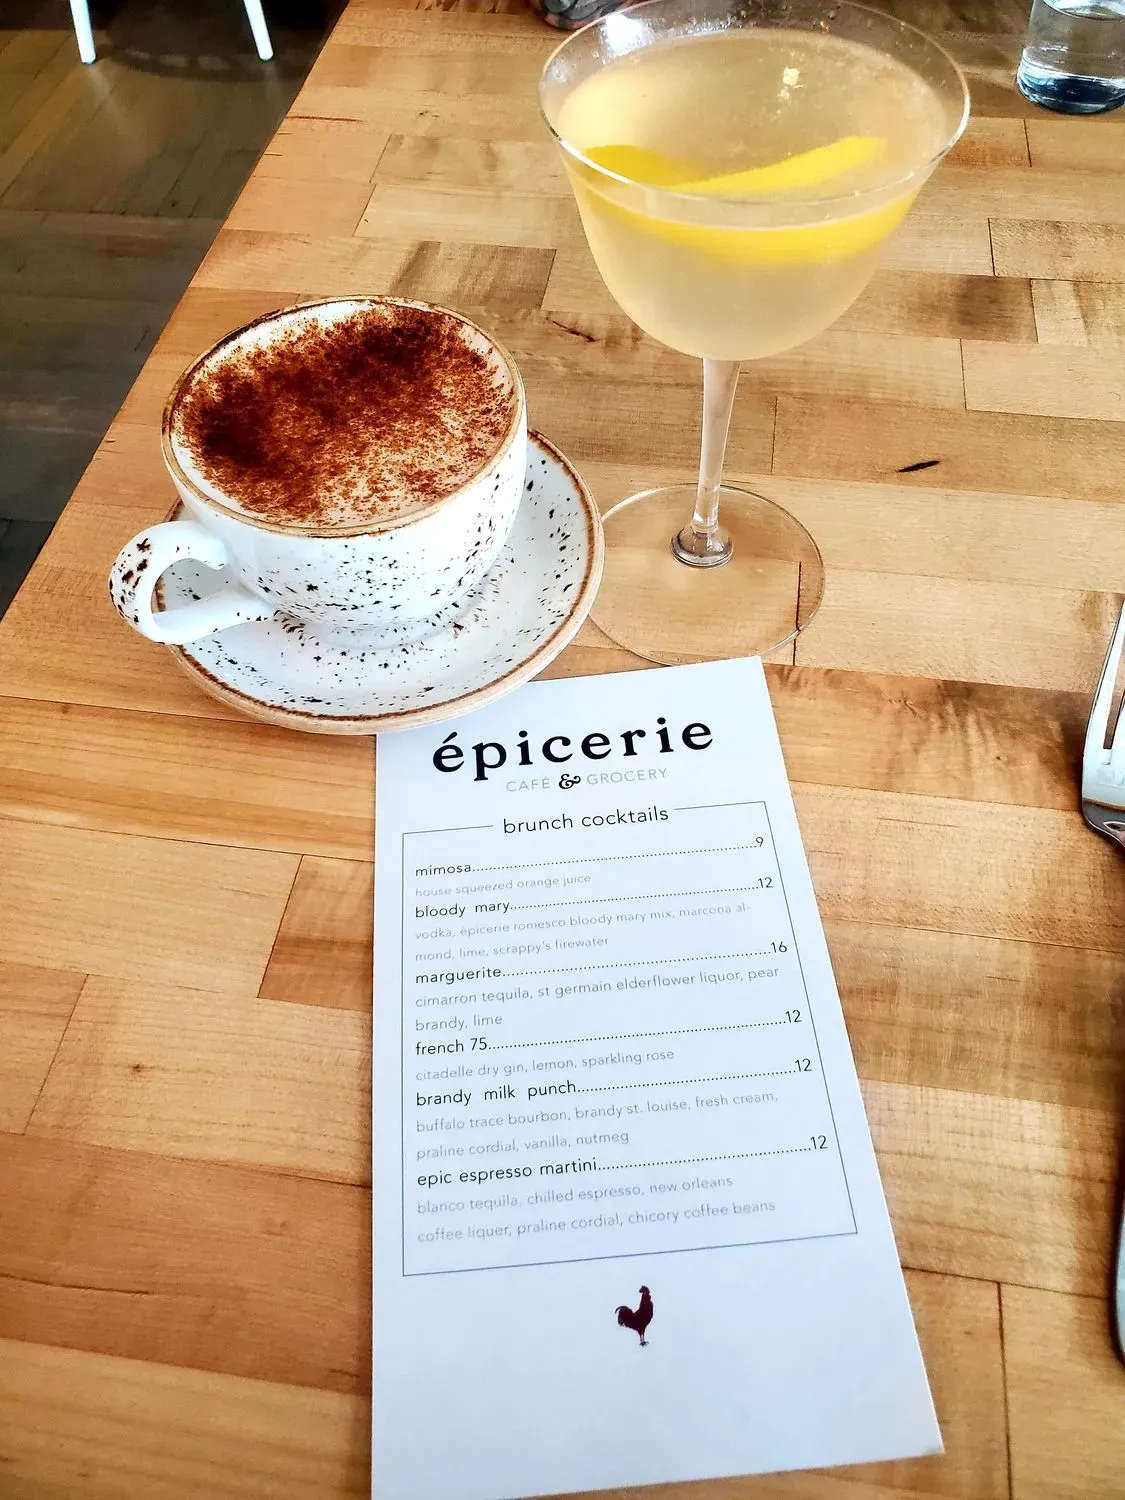 épicerie
CAFÉ & GROCERY
brunch cocktails
mimosa..........9
house squeezed orange juice
bloody mary..........12
vodka, épicerie romesco bloody mary mix, marcona al-
mond, lime, scrappy's firewater
marguerite..........16
cimarron tequila, st germain elderflower liquor, pear
brandy, lime
french 75..........12
citadelle dry gin, lemon, sparkling rose
brandy milk punch..........12
buffalo trace bourbon, brandy st. louise, fresh cream,
praline cordial, vanilla, nutmeg
epic espresso martini..........12
blanco tequila, chilled espresso, new orleans
coffee liquer, praline cordial, chicory coffee beans